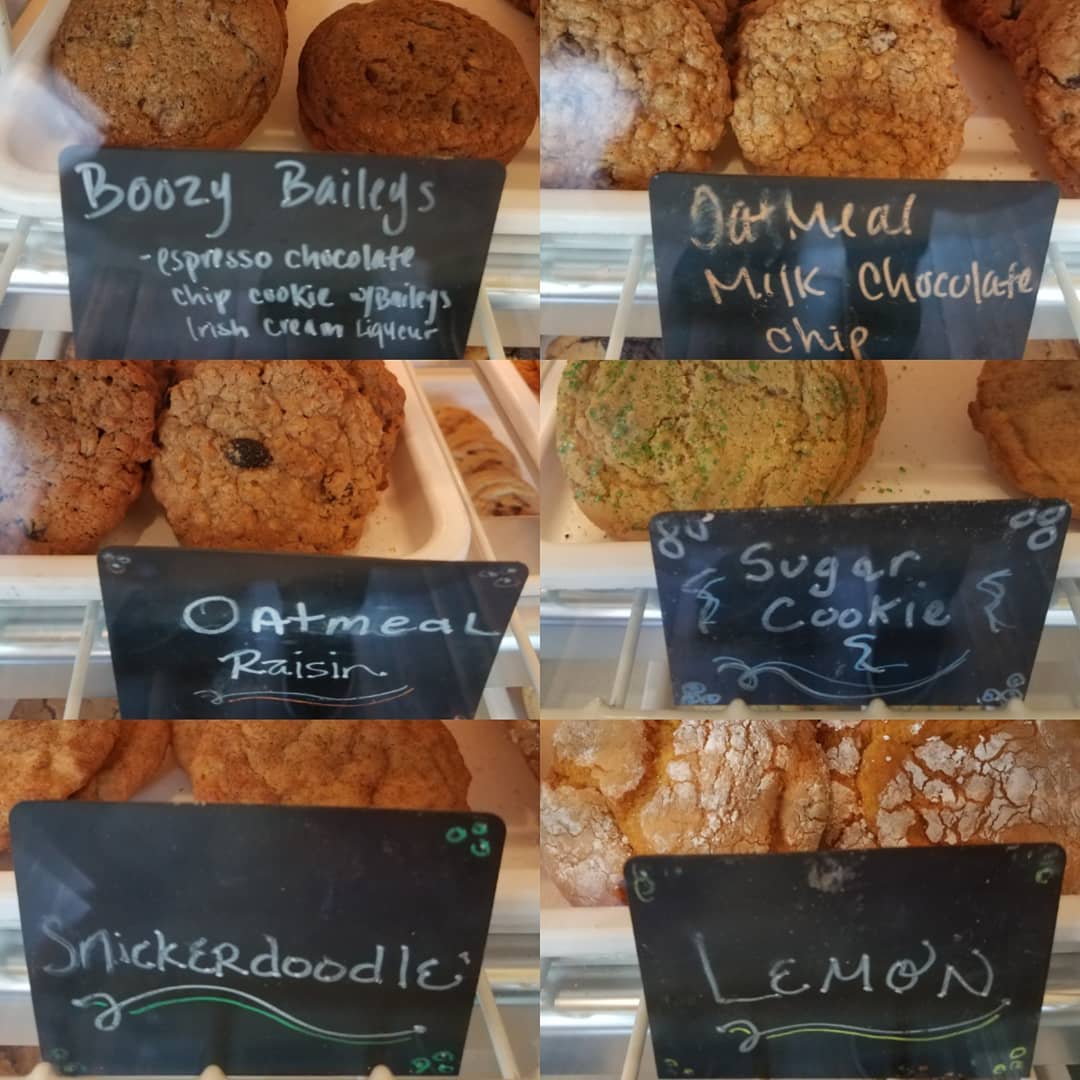 Boozy Baileys
-espresso chocolate
chip cookie w/Baileys
Irish Cream Liqueur
Oatmeal
Milk Chocolate
chip
Oatmeal
Raisin
Sugar
Cookie
Snickerdoodle
Lemon